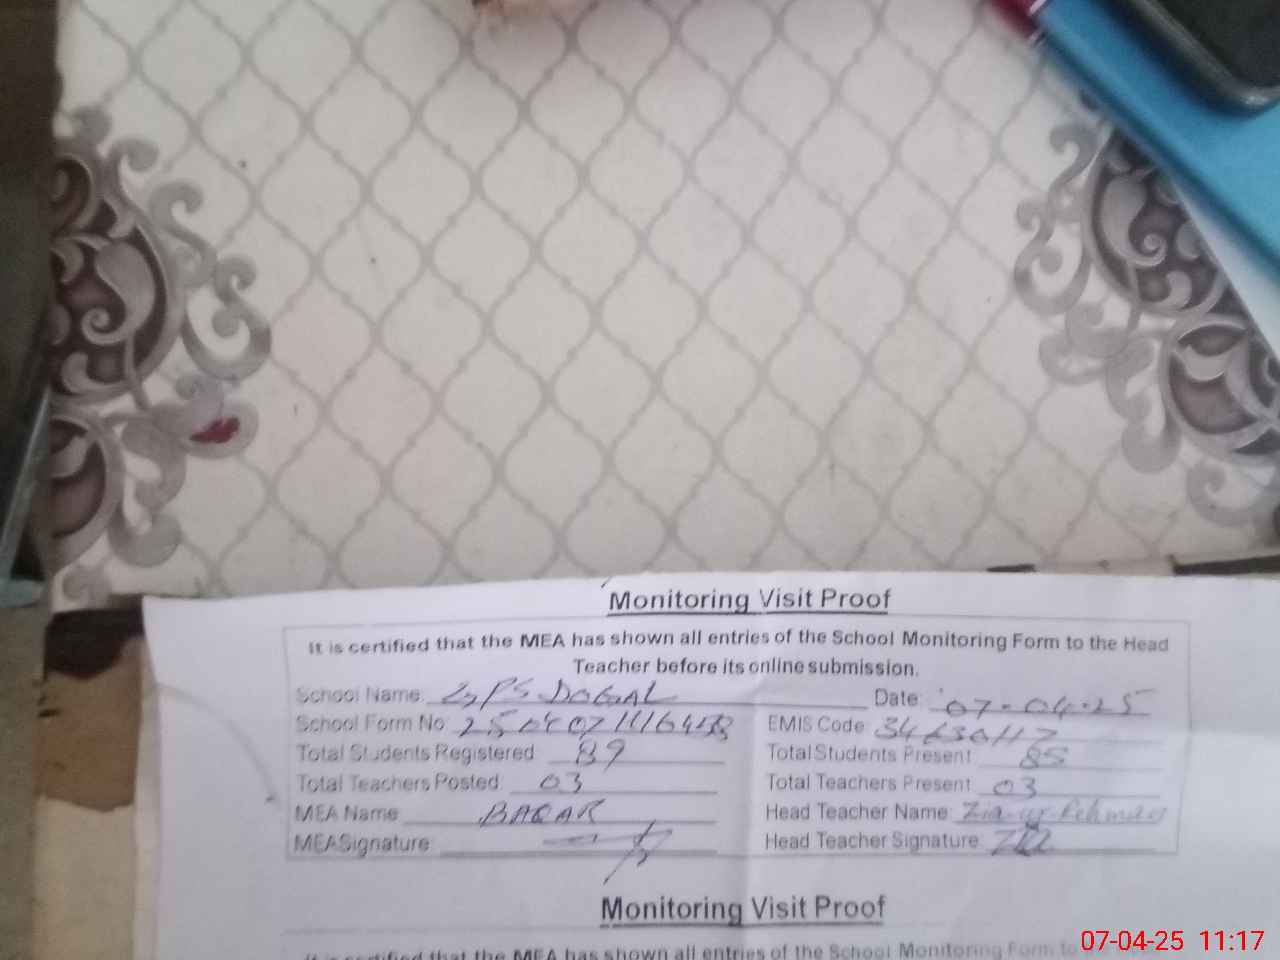 Monitoring Visit Proof
It is certified that the MEA has shown all entries of the School Monitoring Form to the Head
Teacher before its online submission.
School Name: GPS DOGAL Date: 07-04-25
School Form No: EMIS Code:
Total Students Registered 89 Total Students Present 85
Total Teachers Posted 03 Total Teachers Present 03
MEA Name BAQAR Head Teacher Name Zia-ur-Rehman
MEASignature Head Teacher Signature Zia
Monitoring Visit Proof
It is certified that the MEA has shown all entries of the School Monitoring Form to
07-04-25 11:17